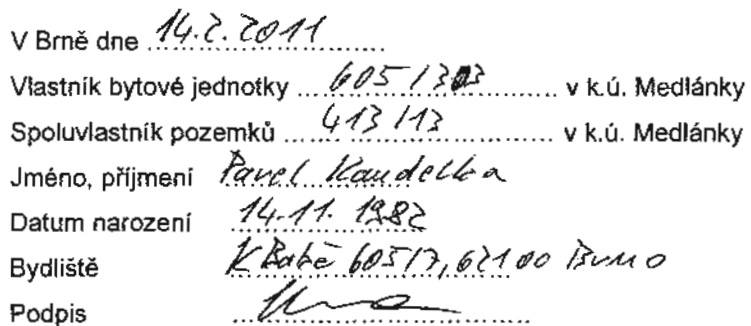 V Brně dne 14.2.2011
Vlastník bytové jednotky 605/303 v k.ú. Medlánky
Spoluvlastník pozemků 413/13 v k.ú. Medlánky
Jméno, příjmení Pavel Kandelka
Datum narození 14.11.1982
Bydliště K Babě 605/7, 621 00 Brno
Podpis